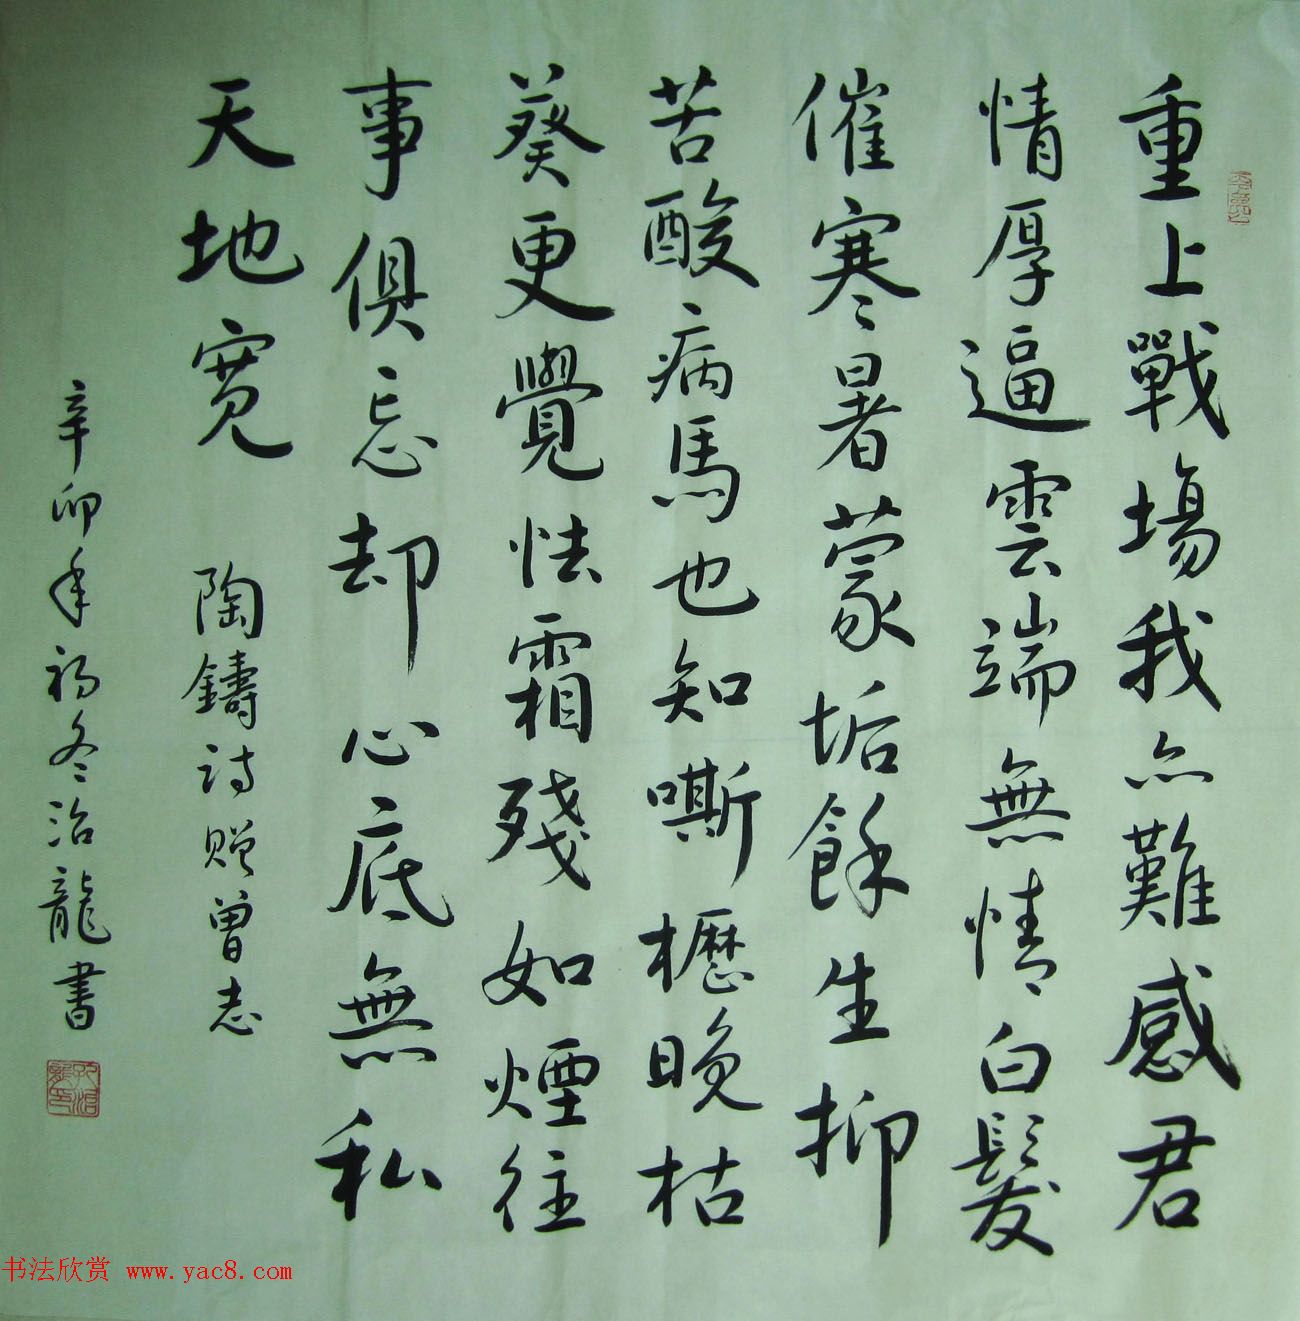 重上戰場我亦難感君
情厚逼雲端無情白髮
催寒暑蒙垢餘生抑
苦酸病馬也知嘶櫪晚枯
葵更覺怯霜殘如煙往
事俱忘却心底無私
天地寬
陶鑄詩贈曾志
辛卯年初冬治龍書
书法欣赏 www.yac8.com